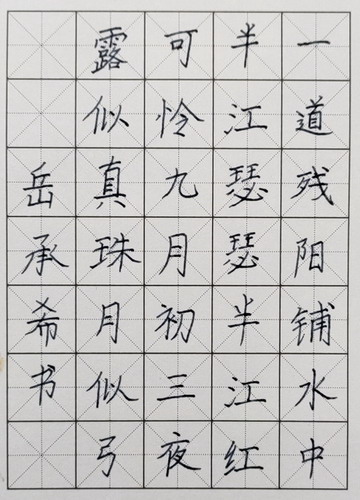 一道残阳铺水中
半江瑟瑟半江红
可怜九月初三夜
露似真珠月似弓
岳承希书